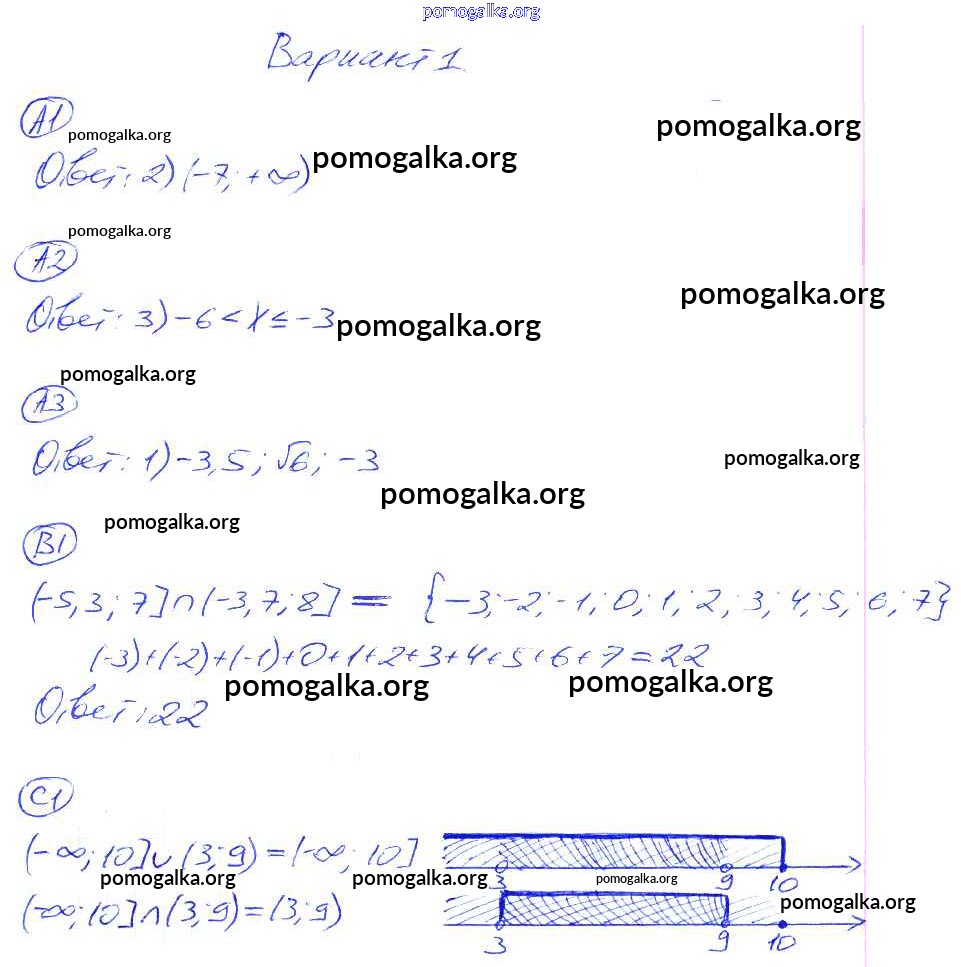 pomogalka.org
Вариант 1
А1
pomogalka.org
pomogalka.org
Ответ: 2) (-7; +∞)
pomogalka.org
pomogalka.org
А2
pomogalka.org
Ответ: 3) -6 < x ≤ -3
pomogalka.org
pomogalka.org
А3
Ответ: 1) -3,5; √6; -3
pomogalka.org
pomogalka.org
pomogalka.org
В1
(-5,3; 7] ∩ (-3,7; 8] = {-3; -2; -1; 0; 1; 2; 3; 4; 5; 6; 7}
(-3)+(-2)+(-1)+0+1+2+3+4+5+6+7=22
pomogalka.org
pomogalka.org
Ответ: 22
С1
(-∞; 10] ∪ (3; 9) = (-∞; 10]
3 9 10
pomogalka.org
pomogalka.org
pomogalka.org
(-∞; 10] ∩ (3; 9) = (3; 9)
pomogalka.org
3 9 10